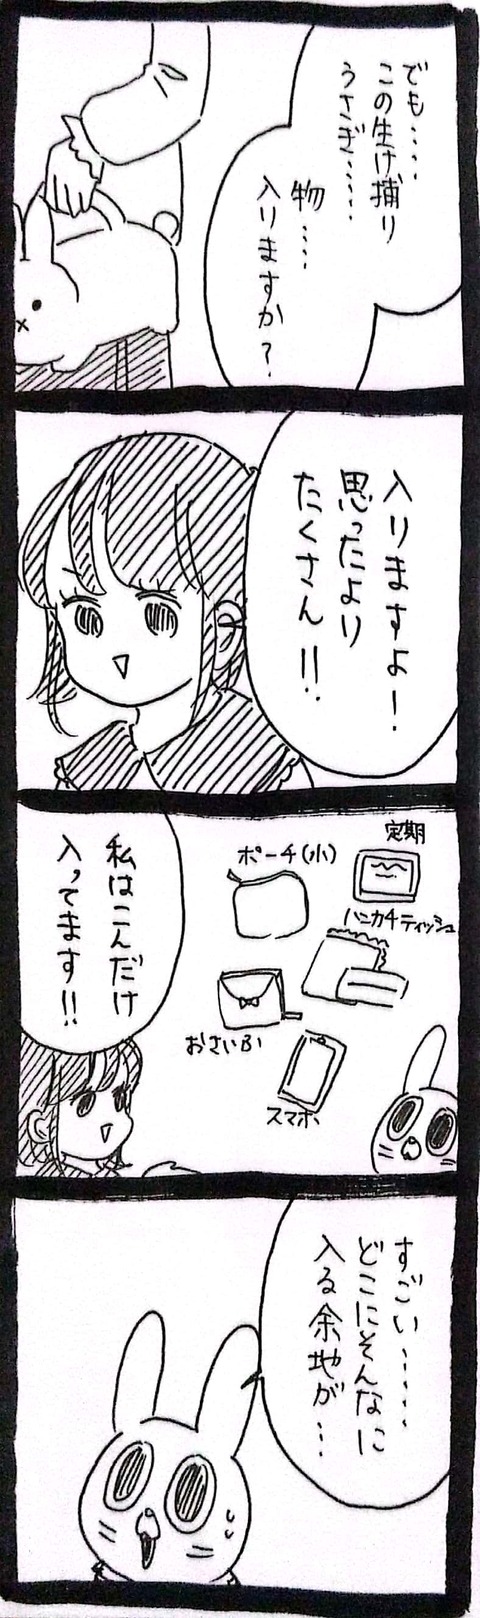 でも・・・・
この生け捕り
うさぎ・・・・・
物・・・・
入りますか？
入りますよ！
思ったより
たくさん！！
定期
ポーチ(小)
ハンカチティッシュ
おさいふ
スマホ
私はこんだけ
入ってます！！
すごい・・・・・
どこにそんなに
入る余地が・・・